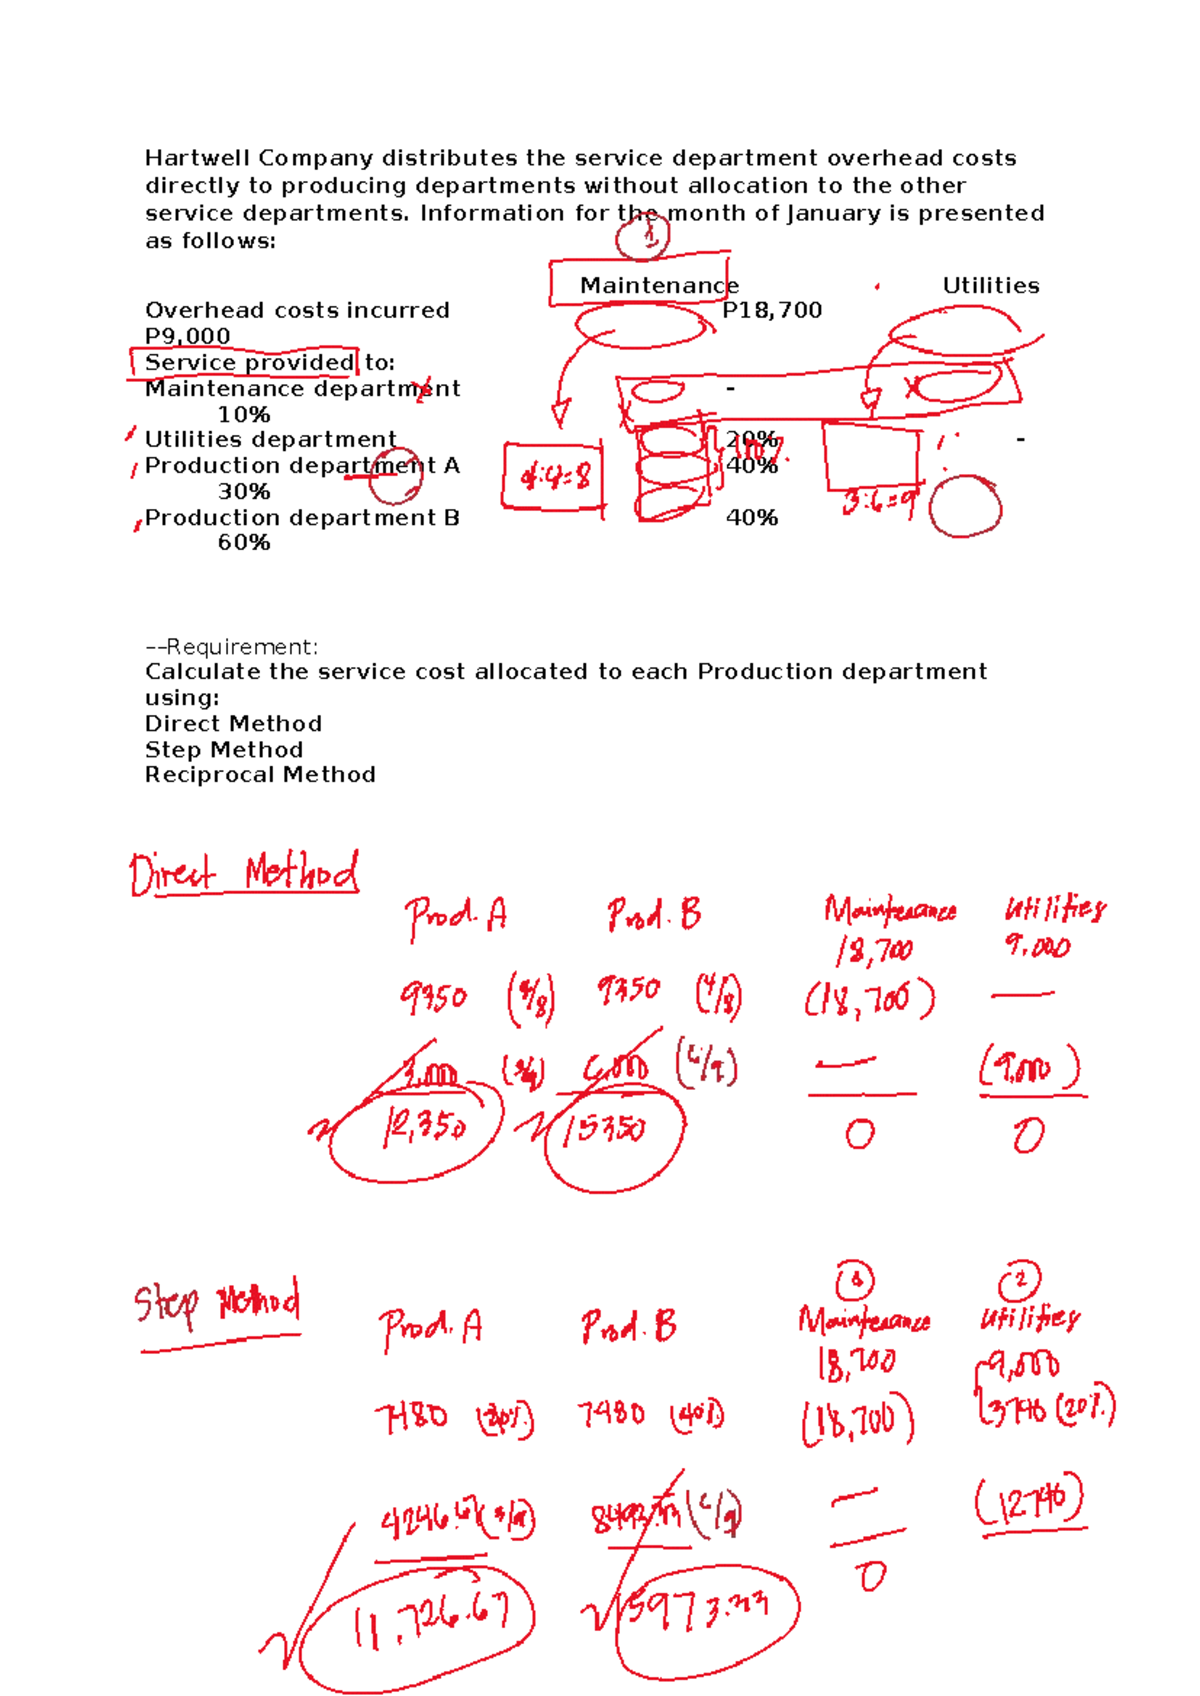 Hartwell Company distributes the service department overhead costs
directly to producing departments without allocation to the other
service departments. Information for the month of January is presented
as follows:
1
Maintenance Utilities
Overhead costs incurred P18,700
P9,000
Service provided to:
Maintenance department -
10%
Utilities department 20% -
100%
Production department A 40%
4:4=8
30%
3:6=9
Production department B 40%
60%
--Requirement:
Calculate the service cost allocated to each Production department
using:
Direct Method
Step Method
Reciprocal Method
Direct Method
Prod. A Prod. B Maintenance Utilities
18,700 9,000
9350 (4/8) 9350 (4/8) (18,700) —
3,000 (3/9) 6,000 (6/9) — (9,000)
12,350 15350 0 0
1 2
Step Method
Prod. A Prod. B Maintenance Utilities
18,700 9,000
7480 (40%) 7480 (40%) (18,700) 3740 (20%)
4246.67 (3/9) 8493.33 (6/9) — (12740)
0
11,726.67 15973.33